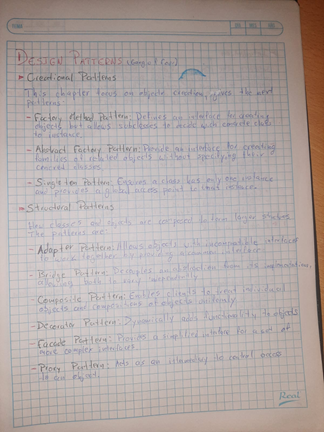 DESIGN PATTERNS (Gang of Four)
Creational Patterns
This chapter focus on objects creation, gives the next
patterns:
- Factory Method Pattern: Defines an interface for creating
objects but allows subclasses to decide with concrete class
to instance.
- Abstract Factory Pattern: Provide an interface for creating
families of related objects without specifying their
concrete classes.
- Singleton Pattern: Ensures a class has only one instance
and provides a global access point to that instance.
Structural Patterns
How classes and objects are composed to form larger structures.
The patterns are
- Adapter Pattern: Allows objects with incompatible interfaces
to work together by providing a common interface.
- Bridge Pattern: Decouples an abstraction from its implementation,
allowing both to vary
- Composite Pattern: Enables clients to treat individual
objects and compositions of objects uniformly
- Decorator Pattern: Dynamically adds functionality to objects
- Facade Pattern: Provides a simplified interface for a set of
more complex interfaces.
- Proxy Pattern: Acts as an intermediary to control access
to an object.